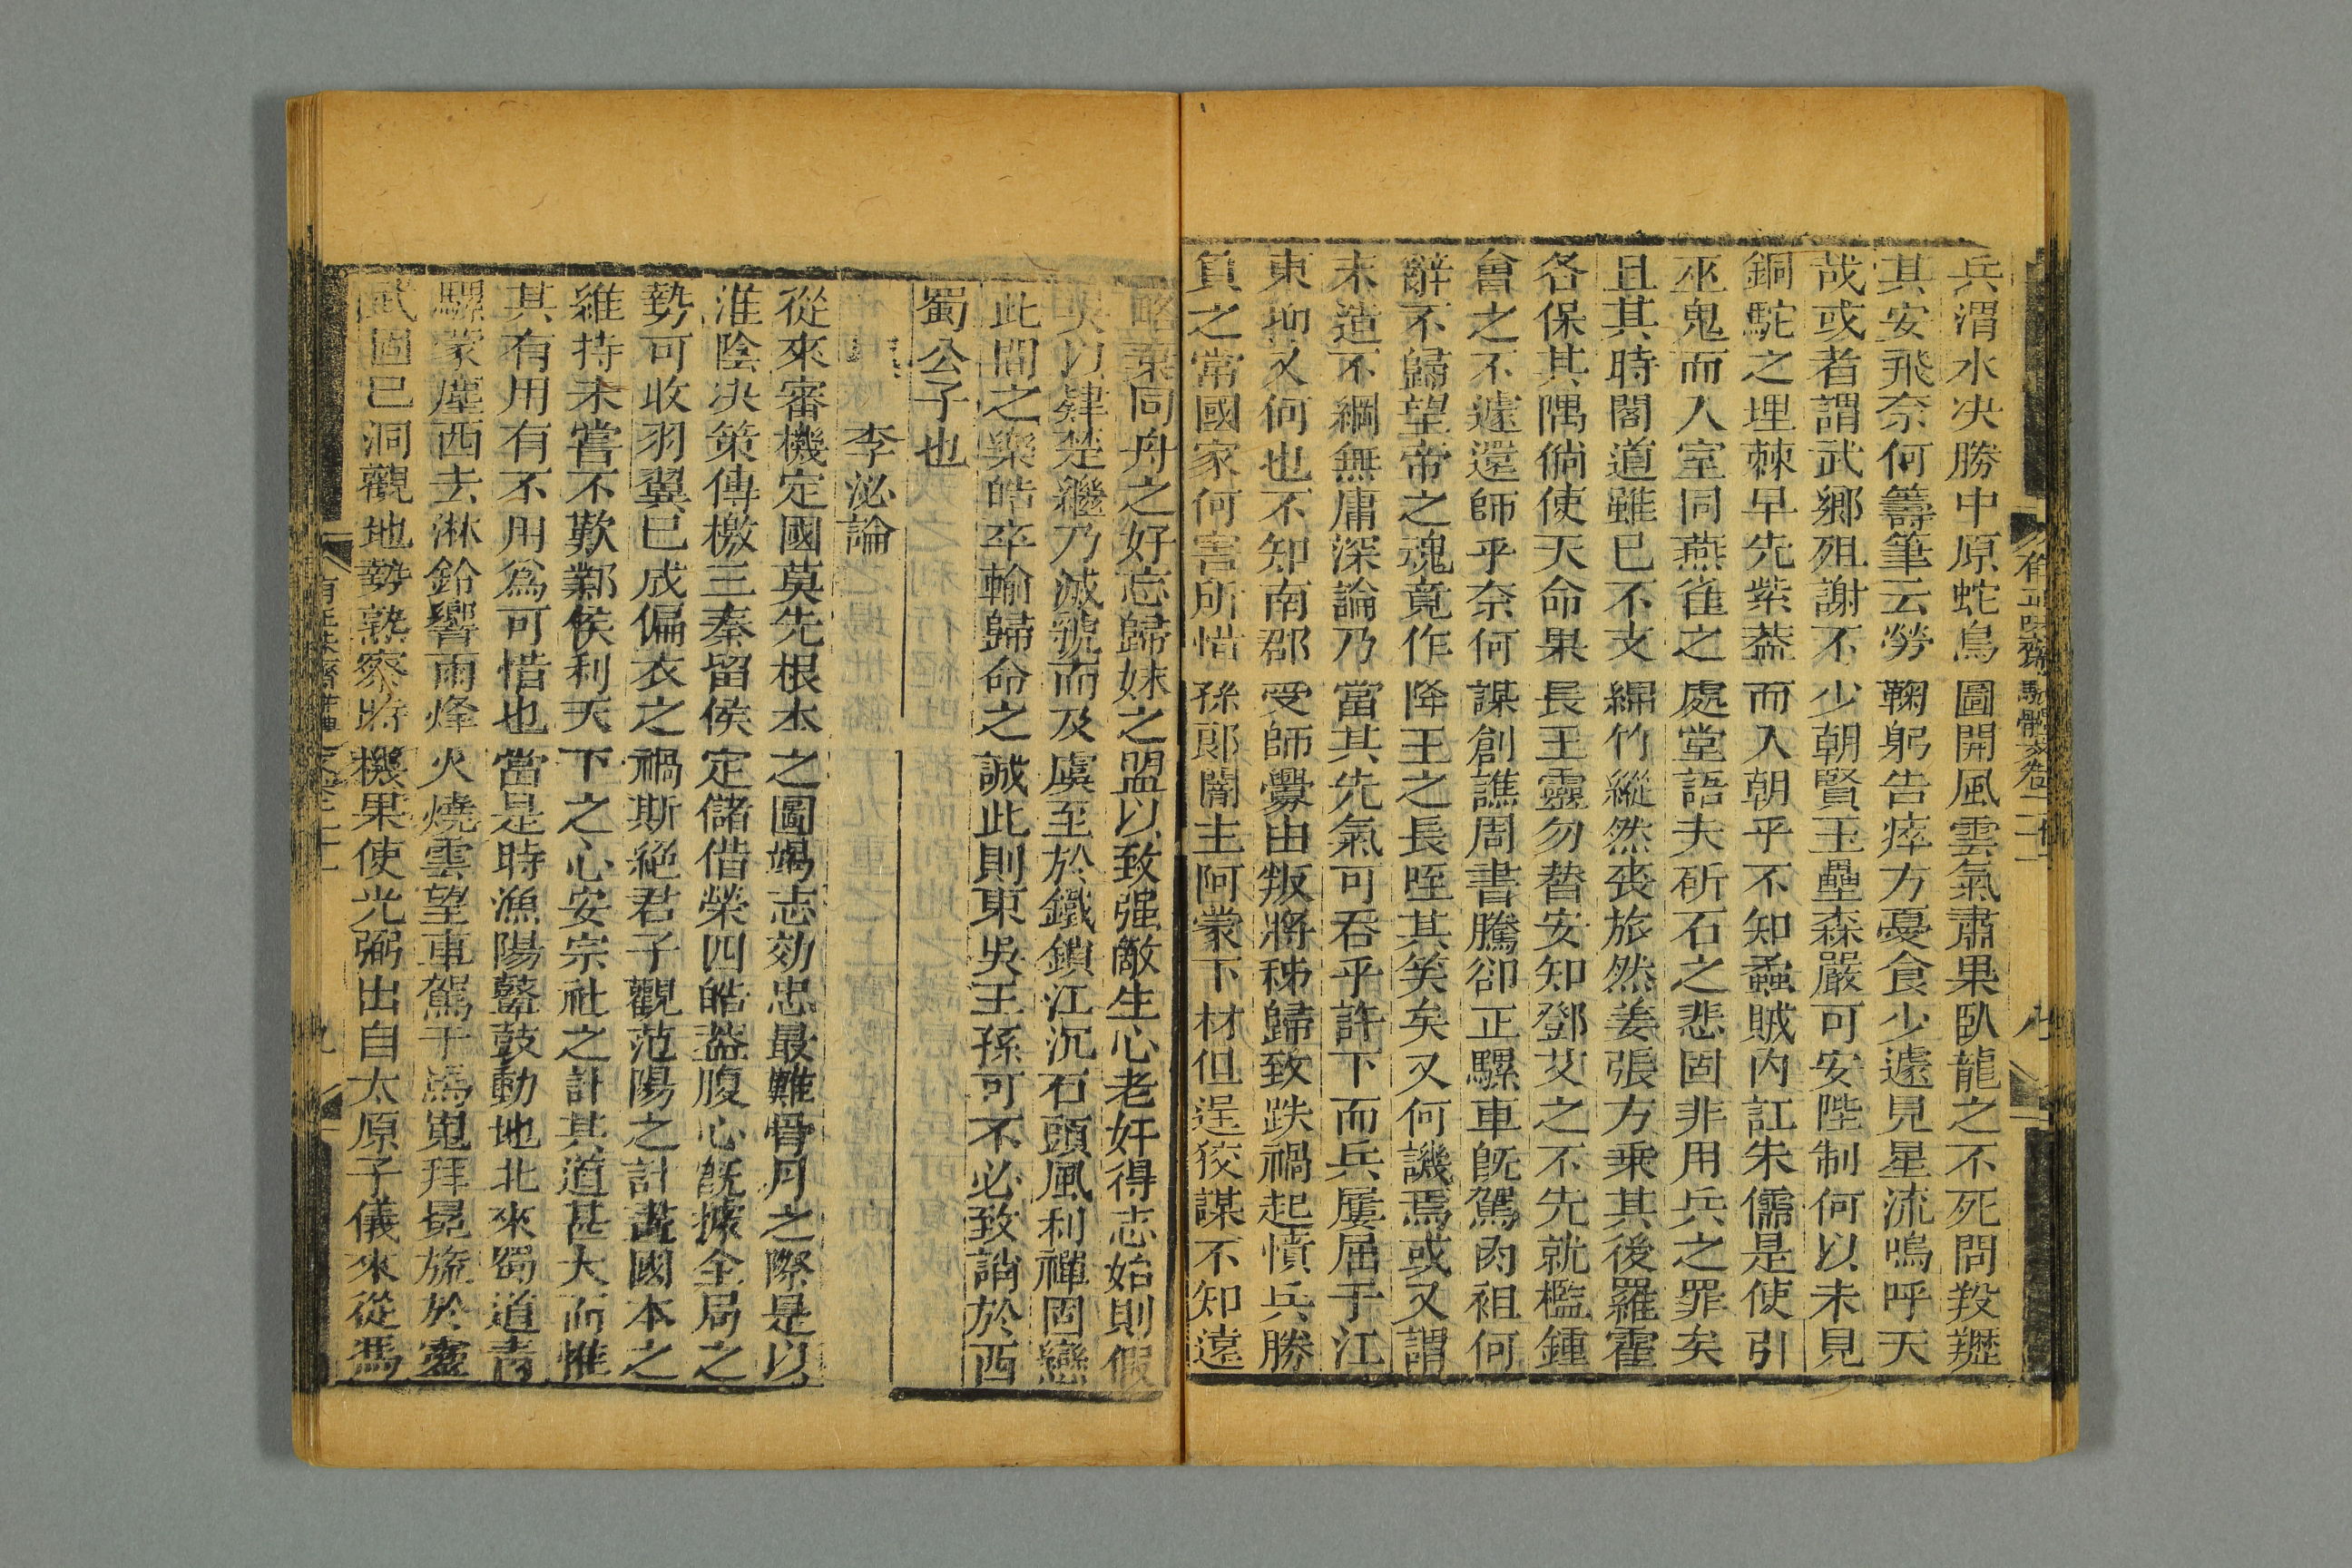 兵渭水决勝中原蛇鳥圖開風雲氣肅果臥龍之不死問羖䍽
其安飛奈何籌筆云勞鞠躬告瘁方憂食少遽見星流嗚呼天
哉或者謂武鄉殂謝不少朝賢玉壘森嚴可安陛制何以未見
銅駝之埋棘早先紫葢而入朝乎不知蟊賊內訌朱儒是使引
巫鬼而人室同燕雀之處堂語夫斫石之悲固非用兵之罪矣
且其時閣道雖已不支綿竹縱然丧旅然姜張方乗其後羅霍
各保其隅倘使天命果長王靈勿替安知鄧艾之不先就檻鍾
會之不遽還師乎奈何謀創譙周書騰卻正騾車旣駕肉袒何
辭不歸望帝之魂竟作降王之長咥其笑矣又何譏焉或又謂
末造不綱無庸深論乃當其先氣可吞乎許下而兵屢屈于江
東抑又何也不知南郡受師釁由叛將秭歸致跌禍起憤兵勝
負之常國家何害所惜孫郞闇主阿蒙下材但逞狡謀不知遠
略棄同舟之好忘歸妹之盟以致强敵生心老奸得志始則假
吳以肄楚繼乃滅虢而及虞至於鐵鎖江沉石頭風利禪固戀
此間之樂皓卒輸歸命之誠此則東吳王孫可不必致誚於西
蜀公子也
李泌論
從來審機定國莫先根本之圖竭志効忠最難骨月之際是以
淮陰决策傳檄三秦留侯定儲借榮四皓葢腹心旣據全局之
勢可收羽翼已成偏衣之禍斯絕君子觀范陽之計畫國本之
維持未嘗不歎鄴侯利天下之心安宗社之計其道甚大而惟
其有用有不用爲可惜也當是時漁陽鼙鼓動地北來蜀道靑
騾蒙塵西去淋鈴響雨烽火燒雲望車駕于馬嵬拜晃旒於靈
武固已洞觀地勢熟察將機果使光弼出自太原子儀來從馮